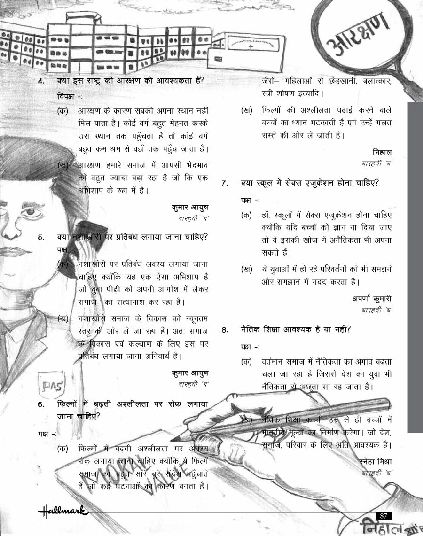 आरक्षण
4. क्या इस राष्ट्र को आरक्षण की आवश्यकता है?
विपक्ष -:
(क) आरक्षण के कारण सबको अपना स्थान नहीं
मिल पाता है। कोई वर्ग बहुत मेहनत करके
उस स्थान तक पहुँचता है तो कोई वर्ग
बहुत कम श्रम से वहाँ तक पहुँच जाता है।
(ख) आरक्षण हमारे समाज में आपसी भेदभाव
को बहुत ज्यादा बढ़ा रहा है जो कि एक
अभिशाप के रूप में है।
कुमार आयुष
बारहवीं
5. क्या नशाखोरी पर प्रतिबंध लगाया जाना चाहिए?
पक्ष
(क) नशाखोरी पर प्रतिबंध अवश्य लगाया जाना
चाहिए क्योंकि यह एक ऐसा अभिशाप है
जो युवा पीढ़ी को अपनी आगोश में लेकर
समाज का सत्यानाश कर रहा है।
(ख) नशाखोरी समाज के विकास को न्यूनतम
स्तर की ओर ले जा रहा है। अतः समाज
के विकास एवं कल्याण के लिए इस पर
प्रतिबंध लगाया जाना अनिवार्य है।
कुमार आयुष
बारहवीं
6. फिल्मों में बढ़ती अश्लीलता पर रोक लगाया
जाना चाहिए?
पक्ष -:
(क) फिल्मों में बढ़ती अश्लीलता पर अवश्य
रोक लगाया जाना चाहिए क्योंकि ये फिल्में
समाज को बहुत
है जो कई घटनाओं का कारण बनता है।
जैसे- महिलाओं से छेड़खानी, बलात्कार,
स्त्री शोषण इत्यादि।
(ख) फिल्मों की अश्लीलता पढ़ाई करने वाले
बच्चों का ध्यान भटकाती है एवं उन्हें गलत
रास्ते की ओर ले जाती है।
निहाल
बारहवीं
7. क्या स्कूल में सेक्स एजुकेशन होना चाहिए?
पक्ष -:
(क) हाँ, स्कूलों में सेक्स एजुकेशन होना चाहिए
क्योंकि यदि बच्चों को ज्ञान ना दिया जाए
तो वे इसकी खोज में अनैतिकता भी अपना
सकते हैं
(ख) ये युवाओं में हो रहे परिवर्तनों को भी समझने
और सम्भालने में मदद करता है।
अपर्णा कुमारी
बारहवीं
8. नैतिक शिक्षा आवश्यक है या नहीं?
पक्ष -:
(क) वर्तमान समाज में नैतिकता का अभाव बढ़ता
चला जा रहा है जिससे देश का युवा भी
नैतिकता से अछूता सा रह जाता है।
नैतिक शिक्षा से ही बच्चों में
मूल्यों का निर्माण करेगा। जो देश,
समाज, परिवार के लिए अति आवश्यक है।
स्नेहा मिश्रा
बारहवीं
MORAL VALUE
Hallmark
57
निहाल